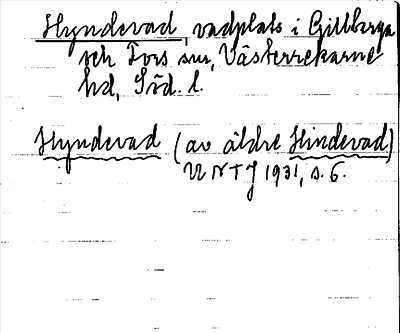 Hyndevad, vadplats i Gillberga
och Fors snr, Västerrekarne
hd, Söd. l.
Hyndevad (av äldre Hindevad)
UNTJ 1931, s. 6.